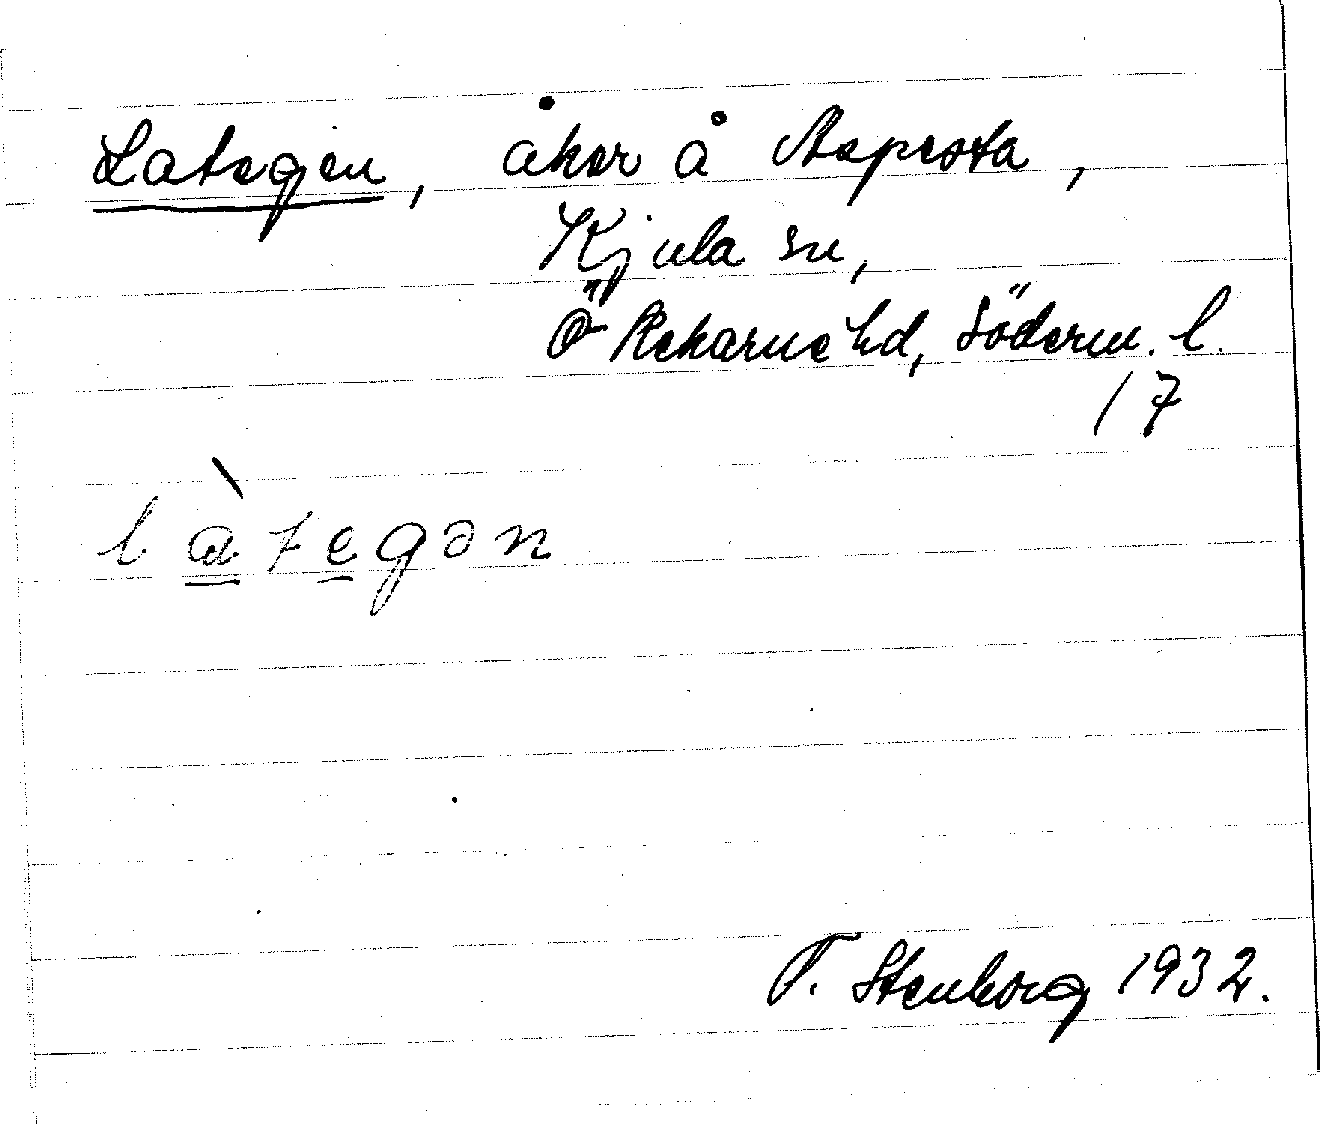 Lategen, åker å Aspesta,
Kjula sn,
Ö Rekarne hd, Söderm. l.
17
làtegən
T. Stenborg 1932.